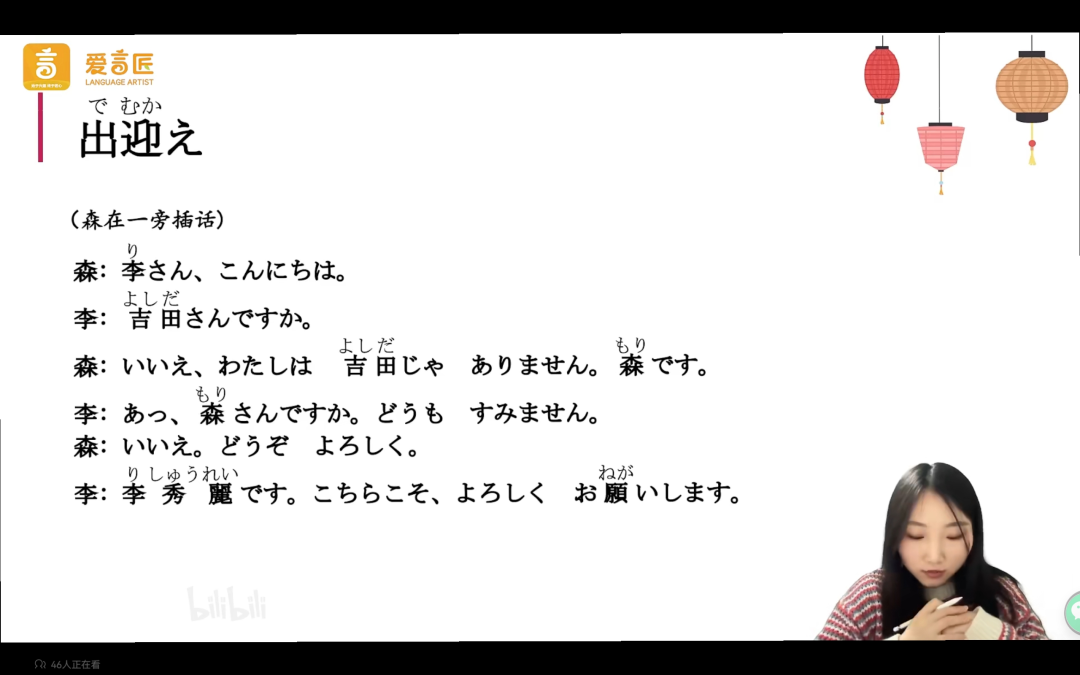 爱言匠
LANGUAGE ARTIST
で むか
出迎え
（森在一旁插话）
り
森：李さん、こんにちは。
よしだ
李：吉田さんですか。
よしだ もり
森：いいえ、わたしは 吉田じゃ ありません。森です。
もり
李：あっ、森さんですか。どうも すみません。
森：いいえ。どうぞ よろしく。
り しゅうれい ねが
李：李秀麗です。こちらこそ、よろしく お願いします。
bilibili
46人正在看